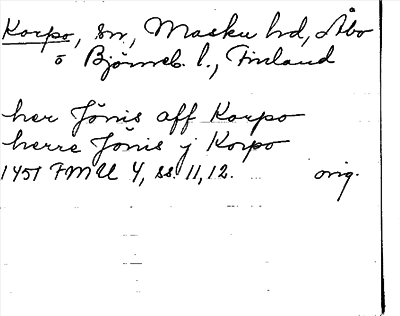 Korpo, sn, Masku hd, Åbo
o Björneb. l., Finland
her Jönis aff Korpo
herre Jönis j Korpo
1451 FMU 4, ss. 11, 12. orig.